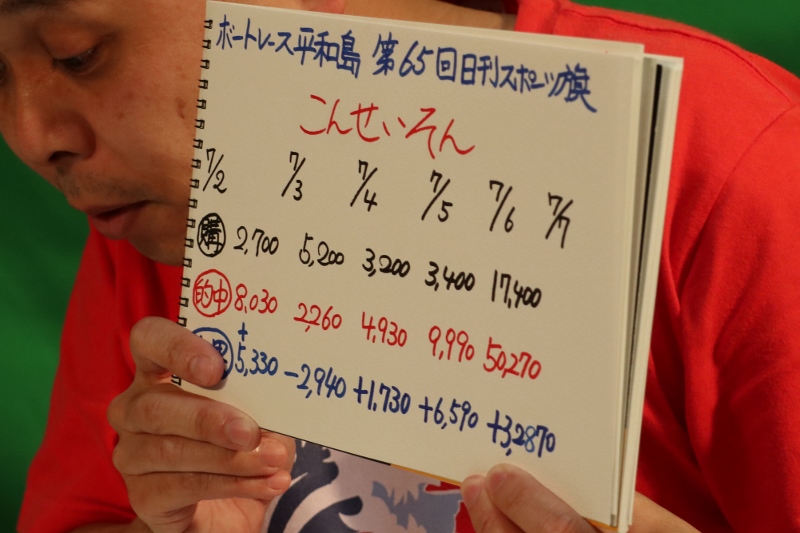 ボートレース平和島 第65回日刊スポーツ旗
こんせいそん
7/2 7/3 7/4 7/5 7/6 7/7
購 2,700 5,200 3,200 3,400 17,400
的中 8,030 2,260 4,930 9,990 50,270
+5,330 -2,940 +1,730 +6,590 +3,2870